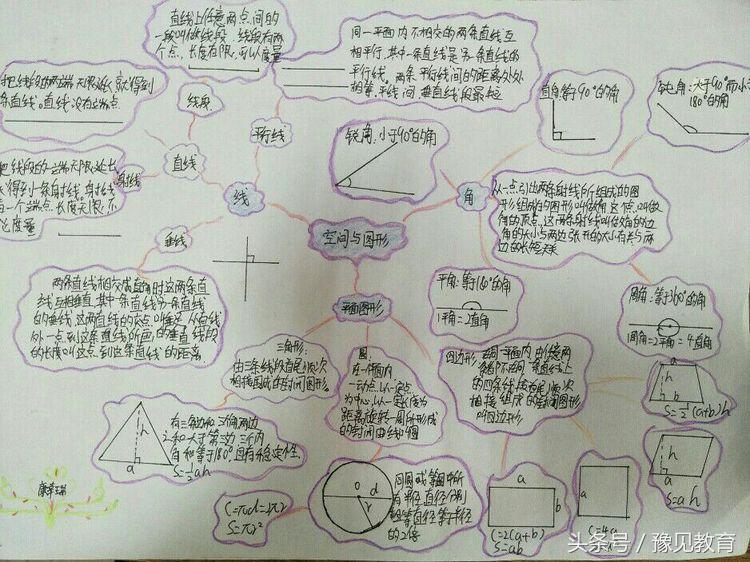 直线上任意两点间的
一段叫做线段,线段有两
个点,长度有限,可以度量
同一平面内不相交的两条直线互
相平行,其中一条直线是另一条直线的
平行线。两条平行线间的距离处处
相等,平行线间垂直线段最短
把线段的两端无限延长就得到
一条直线。直线没有端点
线段
平行线
直线
射线
线
垂线
把线段的一端无限延长
得到一条射线。射线
有一个端点,长度无限,不
能度量
锐角:小于90°的角
直角等于90°的角
钝角:大于90°而小于
180°的角
角
从一点引出两条射线所组成的图
形组成的图形叫做角,这个点叫做
角的顶点,这两条射线叫做角的边
角的大小与两边张开的大小有关与两
边的长短无关
空间与图形
平面图形
两条直线相交成直角时这两条直
线互相垂直,其中一条直线叫另一条直线
的垂线,这两直线的交点叫垂足,从直线
外一点到这条直线所画的垂直线段
的长度叫这点到这条直线的距离
平角:等于180°的角
1平角=2直角
周角:等于360°的角
周角=2平角=4直角
三角形:
由三条线段首尾顺次
相接围成的封闭图形。
圆:
在一平面内
一动点,以一定点
为中心,以一定长度为
距离旋转一周所形成
的封闭曲线叫圆
四边形:
在同一平面内,由任意两
条都不在同一条直线上
的四条线段首尾顺次
相接组成的封闭图形
叫四边形
a
h
b
S=½(a+b)h
h
a
有三条边和三个角两边
之和大于第三边三个内
角和等于180°具有稳定性
S=½ah
h
a
S=ah
C=πd=2πr
S=πr²
O
d
r
同圆或等圆中所
有半径、直径分别
相等直径等于半径
的2倍
a
b
C=2(a+b)
S=ab
a
C=4a
康紫瑞
头条号/豫见教育